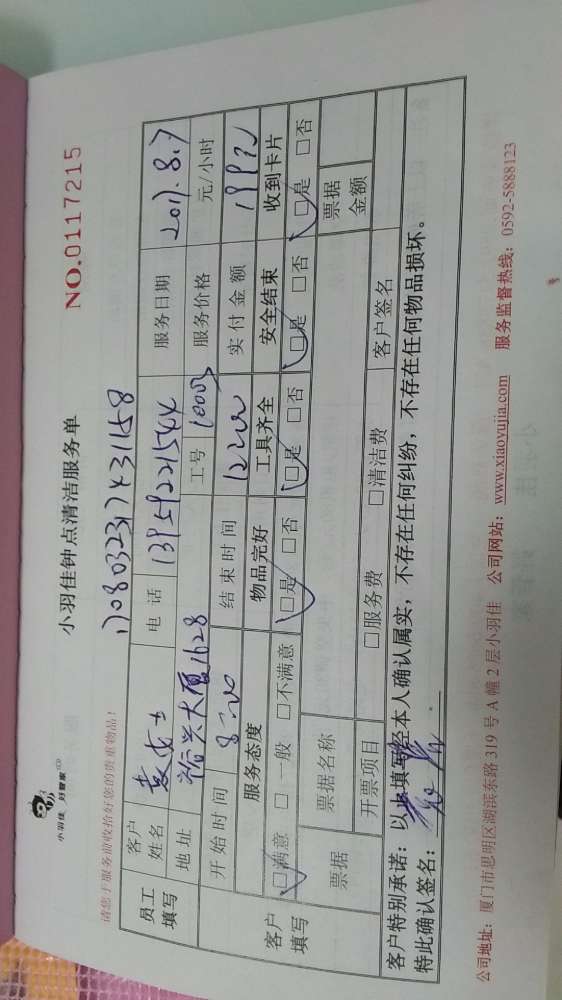 小羽佳 好管家
小羽佳钟点清洁服务单
NO.0117215
请您于服务前收拾好您的贵重物品!
1708032317431158
员工填写
客户姓名 袁女士 电话 13959221544 服务日期 2017.8.7
地址 裕兴大厦1628 工号 10003 服务价格 元/小时
开始时间 8:00 结束时间 12:00 实付金额
客户填写
服务态度 物品完好 工具齐全 安全结束 收到卡片
□满意 □一般 □不满意 □是 □否 □是 □否 □是 □否 □是 □否
票据 票据名称 票据金额
开票项目 □服务费 □清洁费 客户签名
客户特别承诺：以上填写经本人确认属实，不存在任何纠纷，不存在任何物品损坏。
特此确认签名：
公司地址：厦门市思明区湖滨东路 319 号 A 幢 2 层小羽佳 公司网站：www.xiaoyujia.com 服务监督热线：0592-5888123